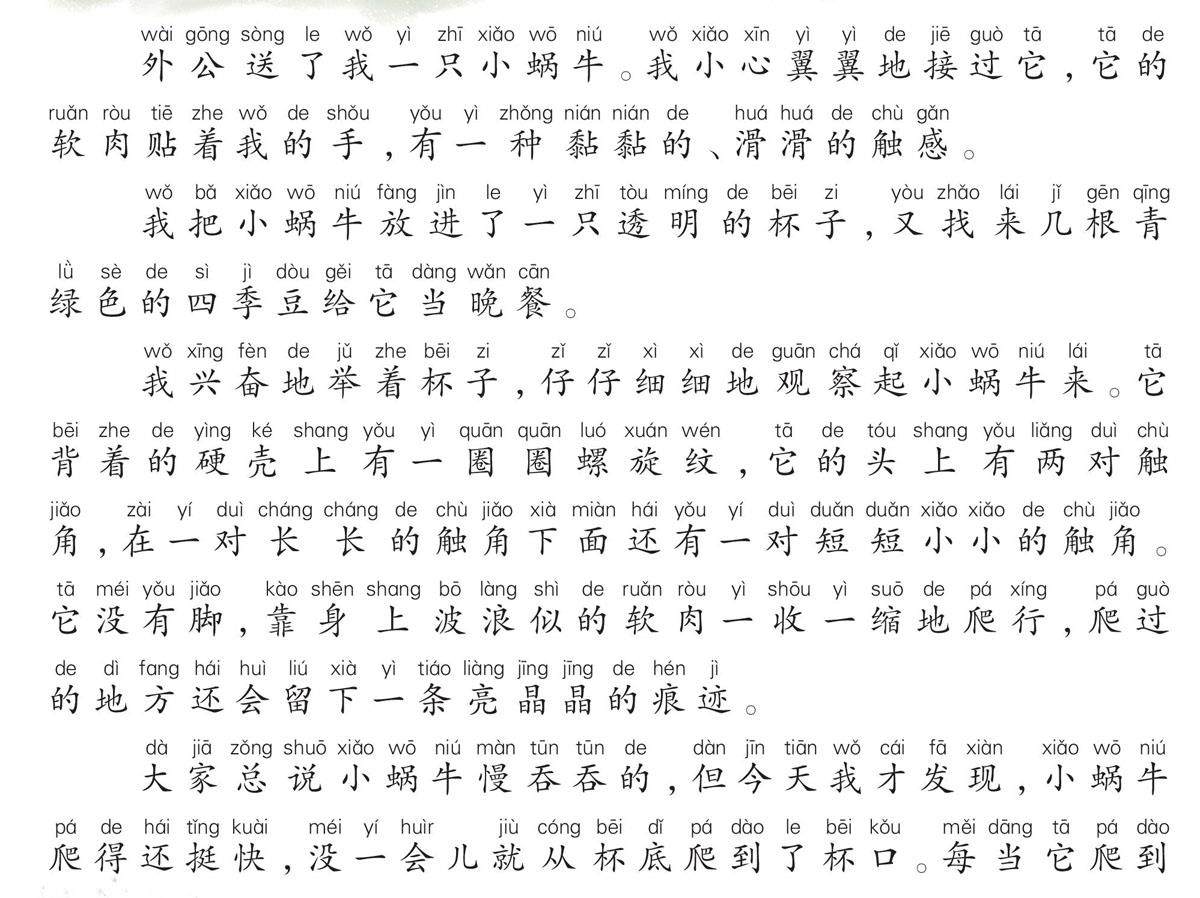 wài gōng sòng le wǒ yì zhī xiǎo wō niú wǒ xiǎo xīn yì yì de jiē guò tā tā de
外公送了我一只小蜗牛。我小心翼翼地接过它,它的
ruǎn ròu tiē zhe wǒ de shǒu yǒu yì zhǒng nián nián de huá huá de chù gǎn
软肉贴着我的手,有一种黏黏的、滑滑的触感。
wǒ bǎ xiǎo wō niú fàng jìn le yì zhī tòu míng de bēi zi yòu zhǎo lái jǐ gēn qīng
我把小蜗牛放进了一只透明的杯子,又找来几根青
lǜ sè de sì jì dòu gěi tā dàng wǎn cān
绿色的四季豆给它当晚餐。
wǒ xīng fèn de jǔ zhe bēi zi zǐ zǐ xì xì de guān chá qǐ xiǎo wō niú lái tā
我兴奋地举着杯子,仔仔细细地观察起小蜗牛来。它
bēi zhe de yìng ké shang yǒu yì quān quān luó xuán wén tā de tóu shang yǒu liǎng duì chù
背着的硬壳上有一圈圈螺旋纹,它的头上有两对触
jiǎo zài yí duì cháng cháng de chù jiǎo xià miàn hái yǒu yí duì duǎn duǎn xiǎo xiǎo de chù jiǎo
角,在一对长长的触角下面还有一对短短小小的触角。
tā méi yǒu jiǎo kào shēn shang bō làng shì de ruǎn ròu yì shōu yì suō de pá xíng pá guò
它没有脚,靠身上波浪似的软肉一收一缩地爬行,爬过
de dì fang hái huì liú xià yì tiáo liàng jīng jīng de hén jì
的地方还会留下一条亮晶晶的痕迹。
dà jiā zǒng shuō xiǎo wō niú màn tūn tūn de dàn jīn tiān wǒ cái fā xiàn xiǎo wō niú
大家总说小蜗牛慢吞吞的,但今天我才发现,小蜗牛
pá de hái tǐng kuài méi yí huìr jiù cóng bēi dǐ pá dào le bēi kǒu měi dāng tā pá dào
爬得还挺快,没一会儿就从杯底爬到了杯口。每当它爬到